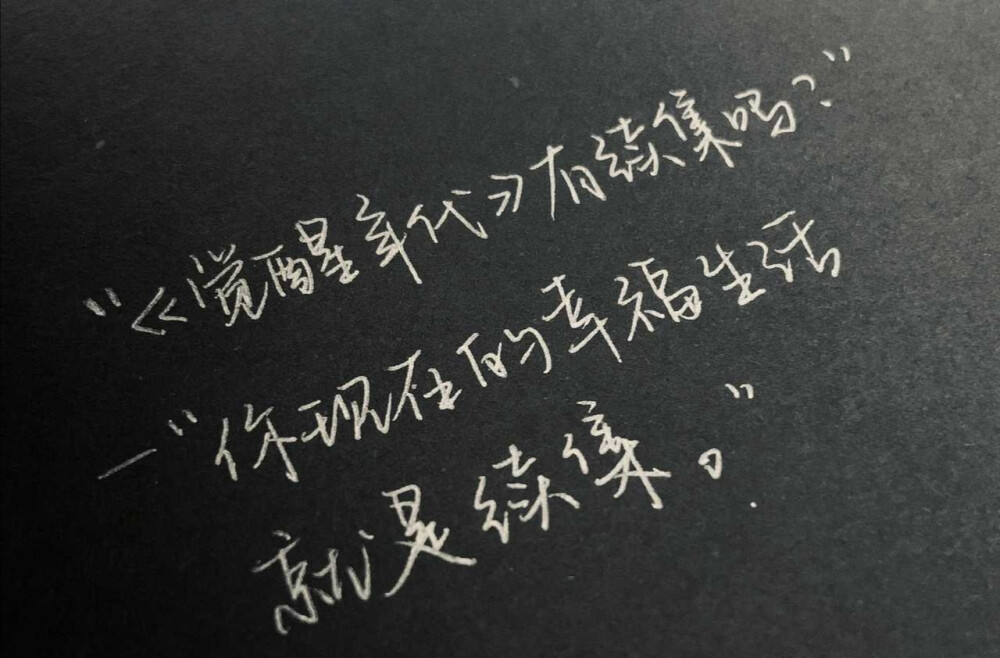 "《觉醒年代》有续集吗?"
—"你现在的幸福生活
就是续集。"